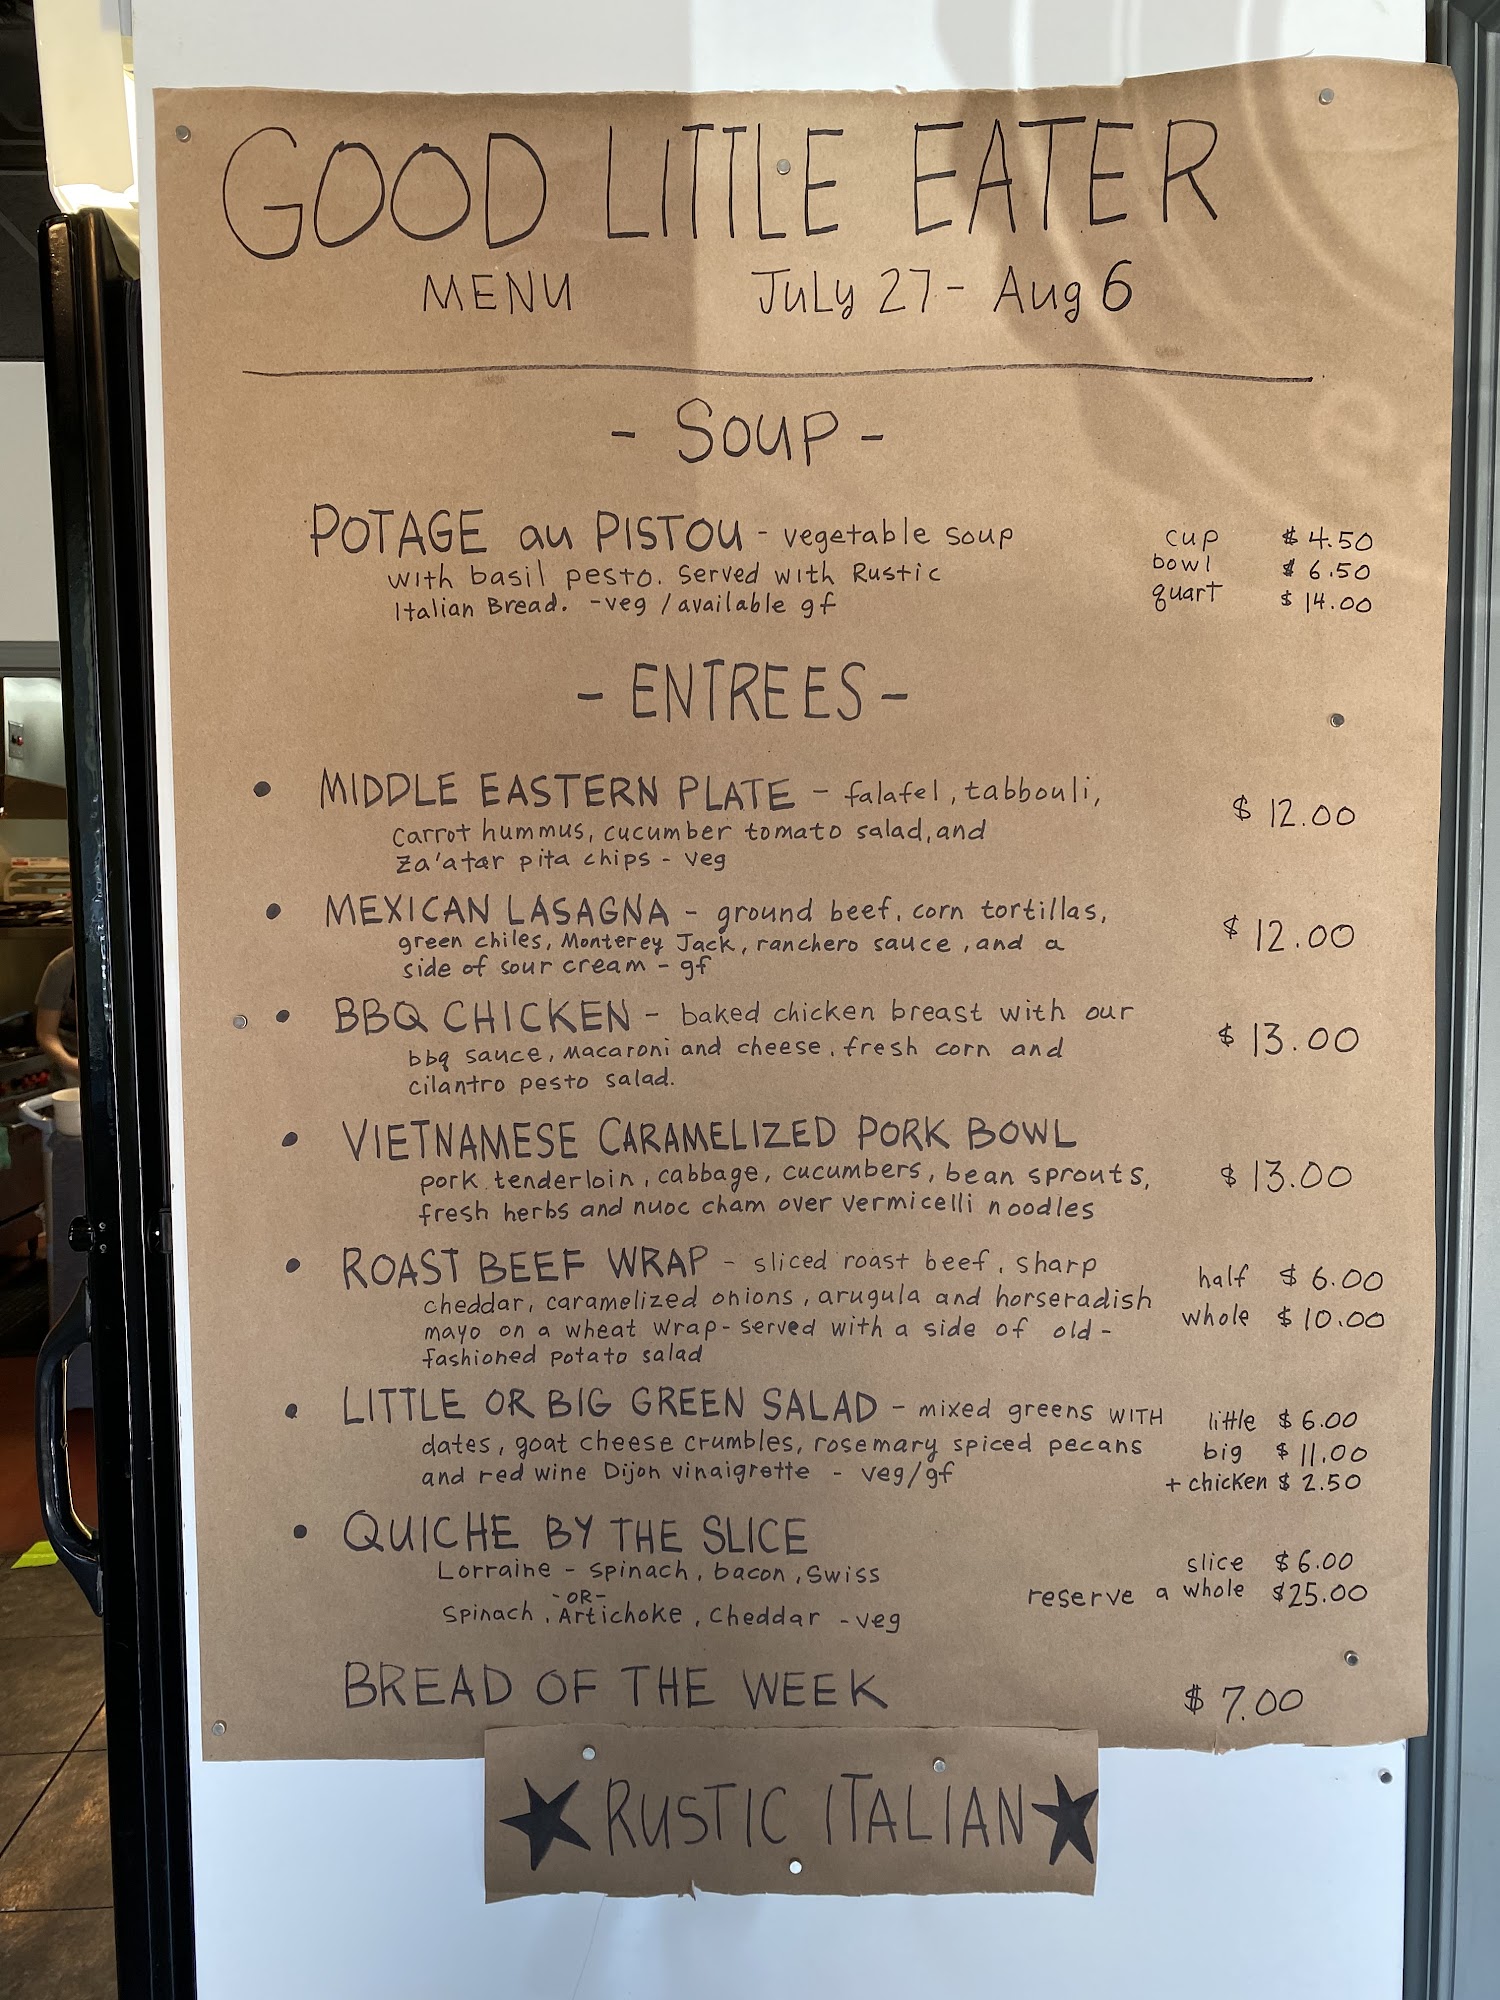 GOOD LITTLE EATER
MENU July 27 - Aug 6
- SOUP -
POTAGE au PISTOU - vegetable soup cup $ 4.50
with basil pesto. Served with Rustic bowl $ 6.50
Italian Bread. -veg / available gf quart $ 14.00
- ENTREES -
• MIDDLE EASTERN PLATE - falafel, tabbouli, $ 12.00
carrot hummus, cucumber tomato salad, and
za'atar pita chips - veg
• MEXICAN LASAGNA - ground beef, corn tortillas, $ 12.00
green chiles, Monterey Jack, ranchero sauce, and a
side of sour cream - gf
• BBQ CHICKEN - baked chicken breast with our $ 13.00
bbq sauce, macaroni and cheese, fresh corn and
cilantro pesto salad.
• VIETNAMESE CARAMELIZED PORK BOWL
pork tenderloin, cabbage, cucumbers, bean sprouts, $ 13.00
fresh herbs and nuoc cham over vermicelli noodles
• ROAST BEEF WRAP - sliced roast beef, sharp half $ 6.00
cheddar, caramelized onions, arugula and horseradish whole $ 10.00
mayo on a wheat wrap - served with a side of old-
fashioned potato salad
• LITTLE OR BIG GREEN SALAD - mixed greens WITH little $ 6.00
dates, goat cheese crumbles, rosemary spiced pecans big $ 11.00
and red wine Dijon vinaigrette - veg/gf + chicken $ 2.50
• QUICHE BY THE SLICE
Lorraine - spinach, bacon, Swiss slice $ 6.00
-OR- reserve a whole $25.00
Spinach, Artichoke, Cheddar - veg
BREAD OF THE WEEK $ 7.00
★ RUSTIC ITALIAN ★